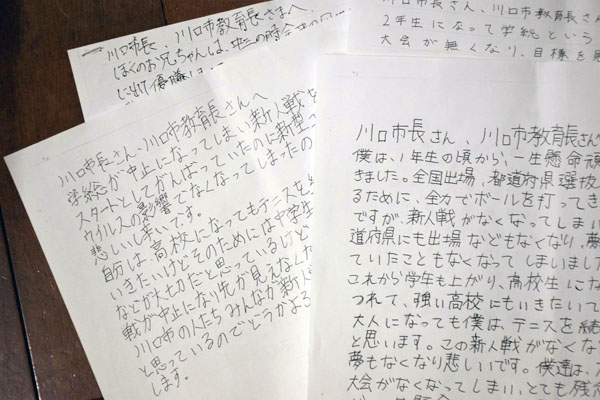 川口市長、川口市教育長さまへ
ぼくのお兄ちゃんは、中三の時全
に出て優勝し
川口市長さん、川口市教育長さん
2年生になって学総という
大会が無くなり、目標を見
川口市長さん・川口市教育長さんへ
学総が中止になってしまい新人戦を
スタートとしてがんばっていたのに新型コ
ウイルスの影響でなくなってしまったの
悲しいし辛いです。
自分は、高校になってもテニスを
いきたいけどそのためには中学生
などが大切だと思っているけど
戦が中止になり先が見えなくな
川口市の人たちみんなが新人
と思っているのでどうかよろ
します。
川口市長さん、川口市教育長さん
僕は、1年生の頃から、一生懸命頑
きました。全国出場、都道府県選抜
るために、全力でボールを打ってき
ですが、新人戦がなくなってしまい
道府県にも出場などもなくなり、夢
ていたこともなくなってしまいまし
これから学年も上がり、高校生にな
つれて、強い高校にもいきたいで
大人になっても僕は、テニスを続
と思います。この新人戦がなくな
夢もなくなり悲しいです。僕達は、
大会がなくなってしまい、とても残念